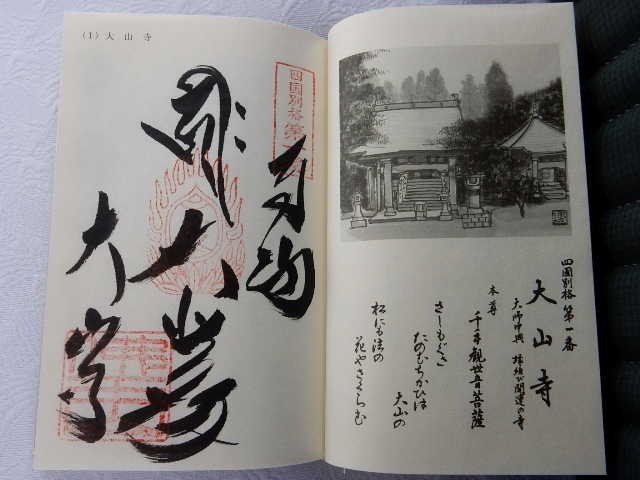 (1) 大山寺
四国別格第一番
奉納
大山寺
四国別格第一番
大山寺
本尊
千手観世音菩薩
さしもぐさ
たのむちかひは
大山の
松にも法の
花やさくらむ